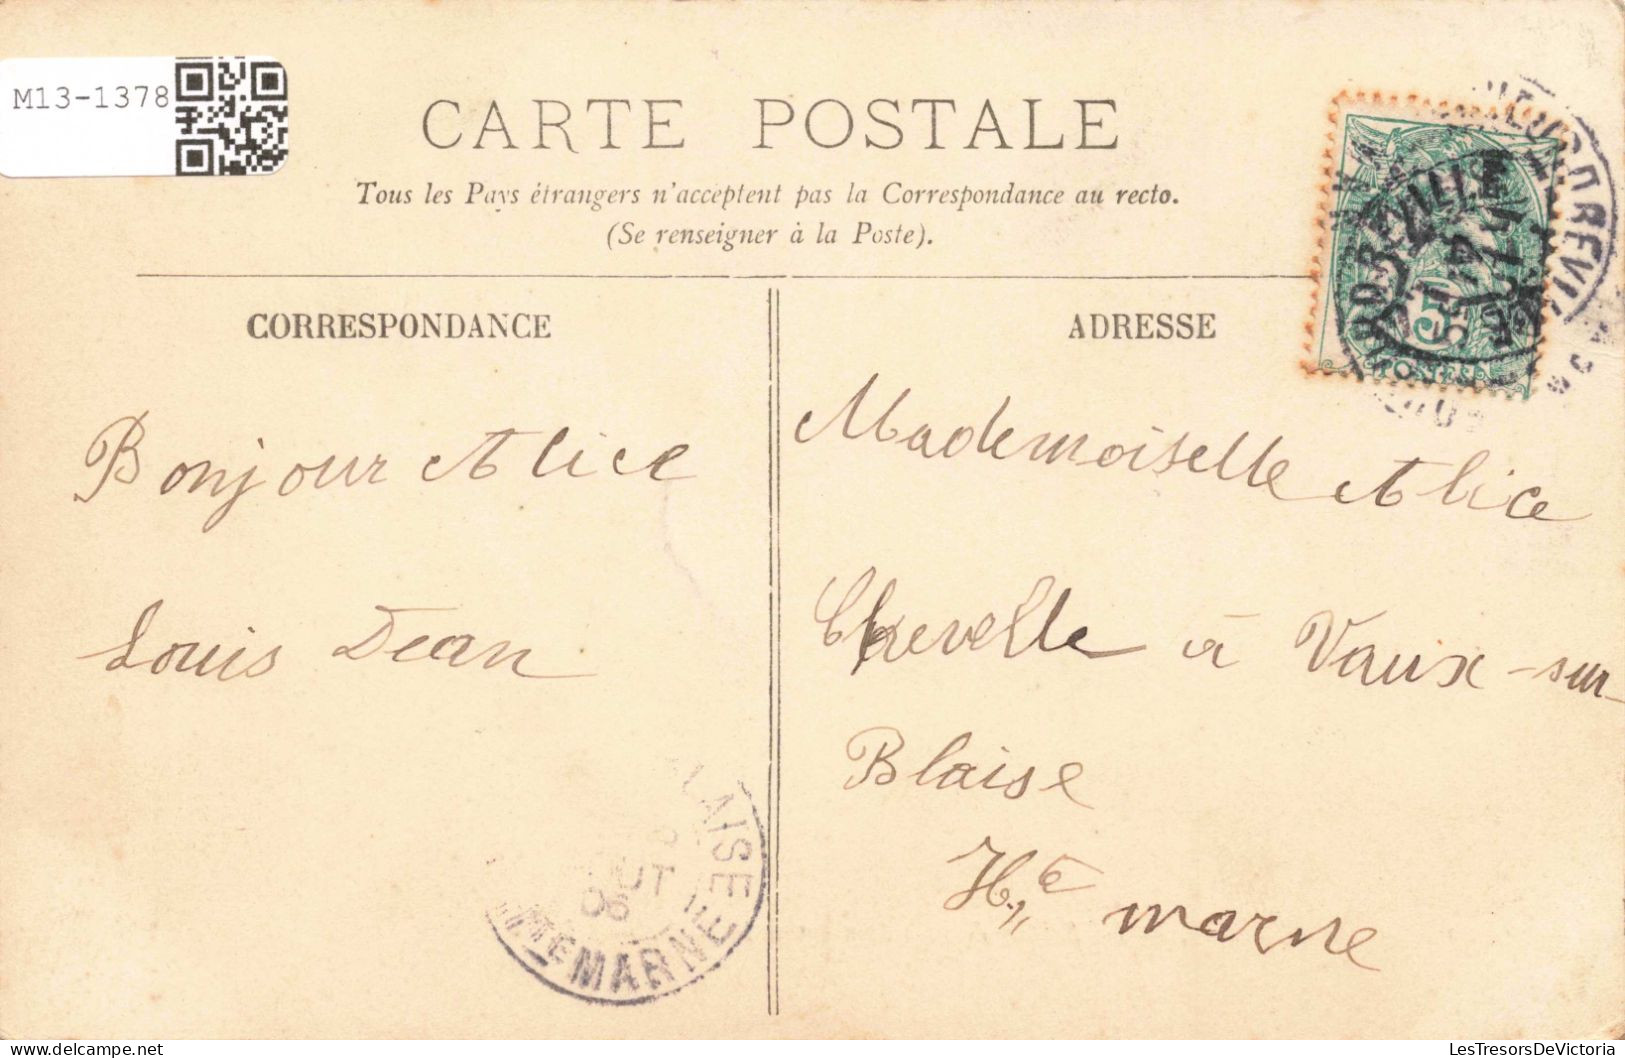 M13-1378
CARTE POSTALE
Tous les Pays étrangers n'acceptent pas la Correspondance au recto.
(Se renseigner à la Poste).
CORRESPONDANCE
Bonjour Alice
Louis Dean
LAISE
MARNE
ADRESSE
5
POSTES
Mademoiselle Alice
Chevelle à Vaux-sur-
Blaise
Hte marne
LesTresorsDeVictoria